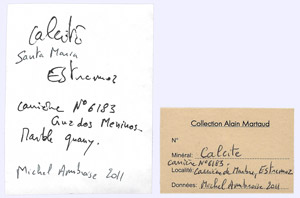 Calcite
Santa Maria
Estremoz
carrière N°6183
Cruz dos Meninos.
Marble quarry.
Michel Ambroise 2011
Collection Alain Martaud
N°
Minéral: Calcite
carrière N°6183.
Localité: Carrière de Marbre, Estremoz
Données: Michel Ambroise 2011